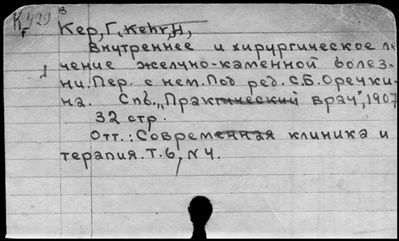 К 429 В
г
Кер, Г. Kehr, H,
Внутреннее и хирургическое ле
чение желчно-каменной болез-
ни. Пер. с нем. Под ред. С.Б. Оречки-
на. Спб., "Практический врач", 1907
32 стр.
Отт.: Современная клиника и
терапия. Т. 6, N 4.